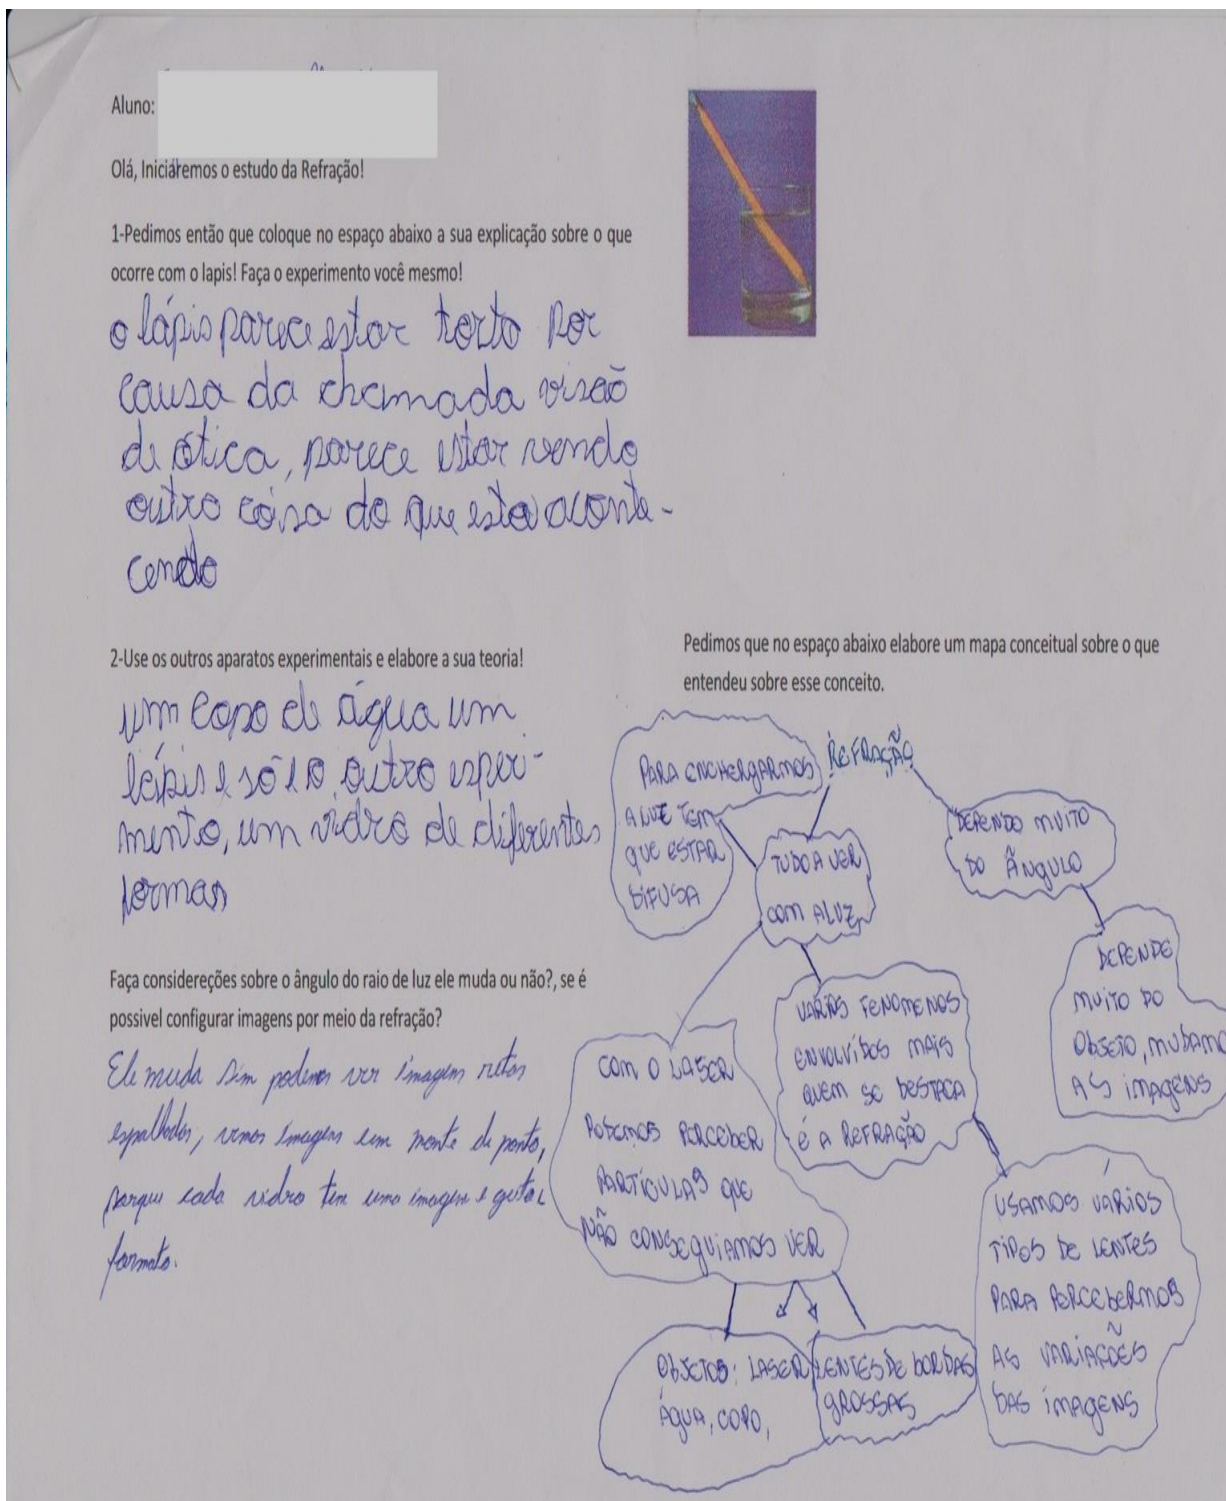 Aluno:
Olá, Iniciaremos o estudo da Refração!
1-Pedimos então que coloque no espaço abaixo a sua explicação sobre o que
ocorre com o lapis! Faça o experimento você mesmo!
o lápis parece estar torto por
causa da chamada visão
de ótica, parece estar vendo
outro coisa do que esta aconte-
cendo
2-Use os outros aparatos experimentais e elabore a sua teoria!
um copo de água um
lápis e só e o outro experi-
mento, um vidro de diferentes
formas
Faça considereções sobre o ângulo do raio de luz ele muda ou não?, se é
possivel configurar imagens por meio da refração?
Ele muda sim podemos ver imagem retas
espalhadas, vemos imagem em monte de ponto,
porque cada vidro tem uma imagem e
formato.
Pedimos que no espaço abaixo elabore um mapa conceitual sobre o que
entendeu sobre esse conceito.
REFRAÇÃO
PARA ENCHERGARMOS
A LUZ TEM
QUE ESTAR
DIFUSA
TUDO A VER
COM A LUZ
DEPENDO MUITO
DO ÂNGULO
DEPENDE
MUITO DO
OBJETO, MUDAMO
AS IMAGENS
VÁRIOS FENOMENOS
ENVOLVIDOS MAIS
QUEM SE DESTACA
É A REFRAÇÃO
COM O LASER
PODEMOS PERCEBER
PARTÍCULAS QUE
NÃO CONSEGUIAMOS VER
USAMOS VÁRIOS
TIPOS DE LENTES
PARA PERCEBERMOS
AS VARIAÇÕES
DAS IMAGENS
OBJETOS: LASER
ÁGUA, COPO,
LENTES DE BORDAS
GROSSAS